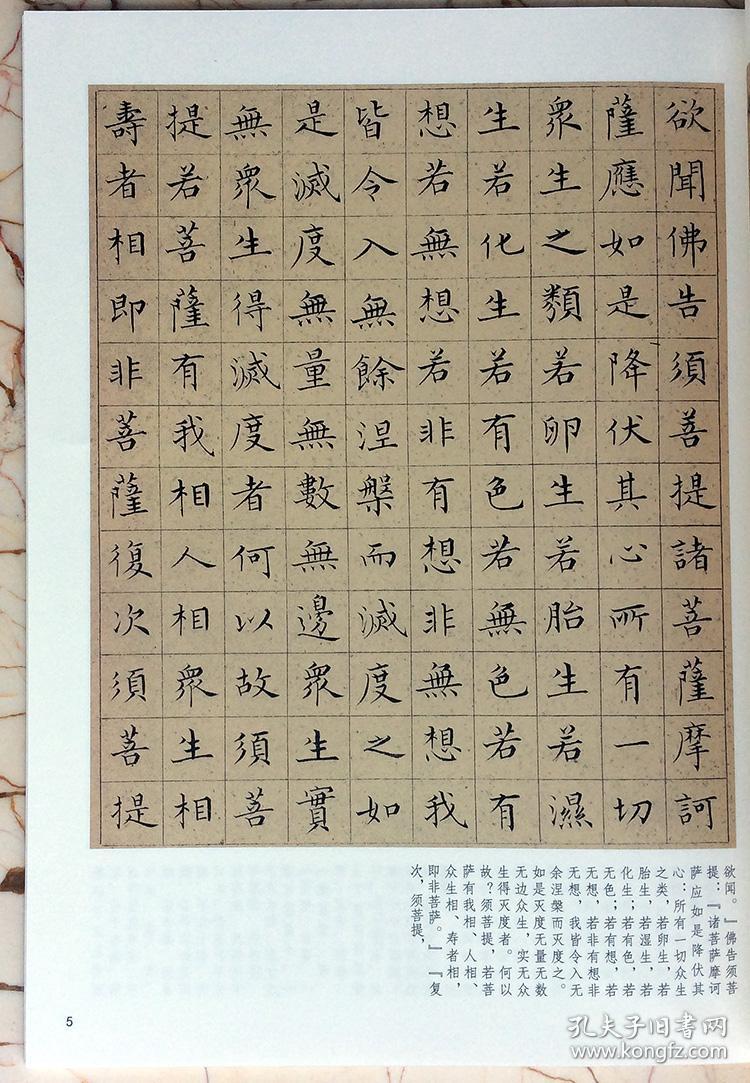 欲聞佛告須菩提諸菩薩摩訶
薩應如是降伏其心所有一切
衆生之類若卵生若胎生若濕
生若化生若有色若無色若有
想若無想若非有想非無想我
皆令入無餘涅槃而滅度之如
是滅度無量無數無邊衆生實
無衆生得滅度者何以故須菩
提若菩薩有我相人相衆生相
壽者相即非菩薩復次須菩提
欲闻。』佛告须菩
提：『诸菩萨摩诃
萨应如是降伏其
心：所有一切众生
之类，若卵生，若
胎生，若湿生，若
化生；若有色，若
无色；若有想，若
无想，若非有想非
无想，我皆令入无
余涅槃而灭度之。
如是灭度无量无数
无边众生，实无众
生得灭度者。何以
故？须菩提，若菩
萨有我相、人相、
众生相、寿者相，
即非菩萨。』『复
次，须菩提，
5
孔夫子旧书网
www.kongfz.com